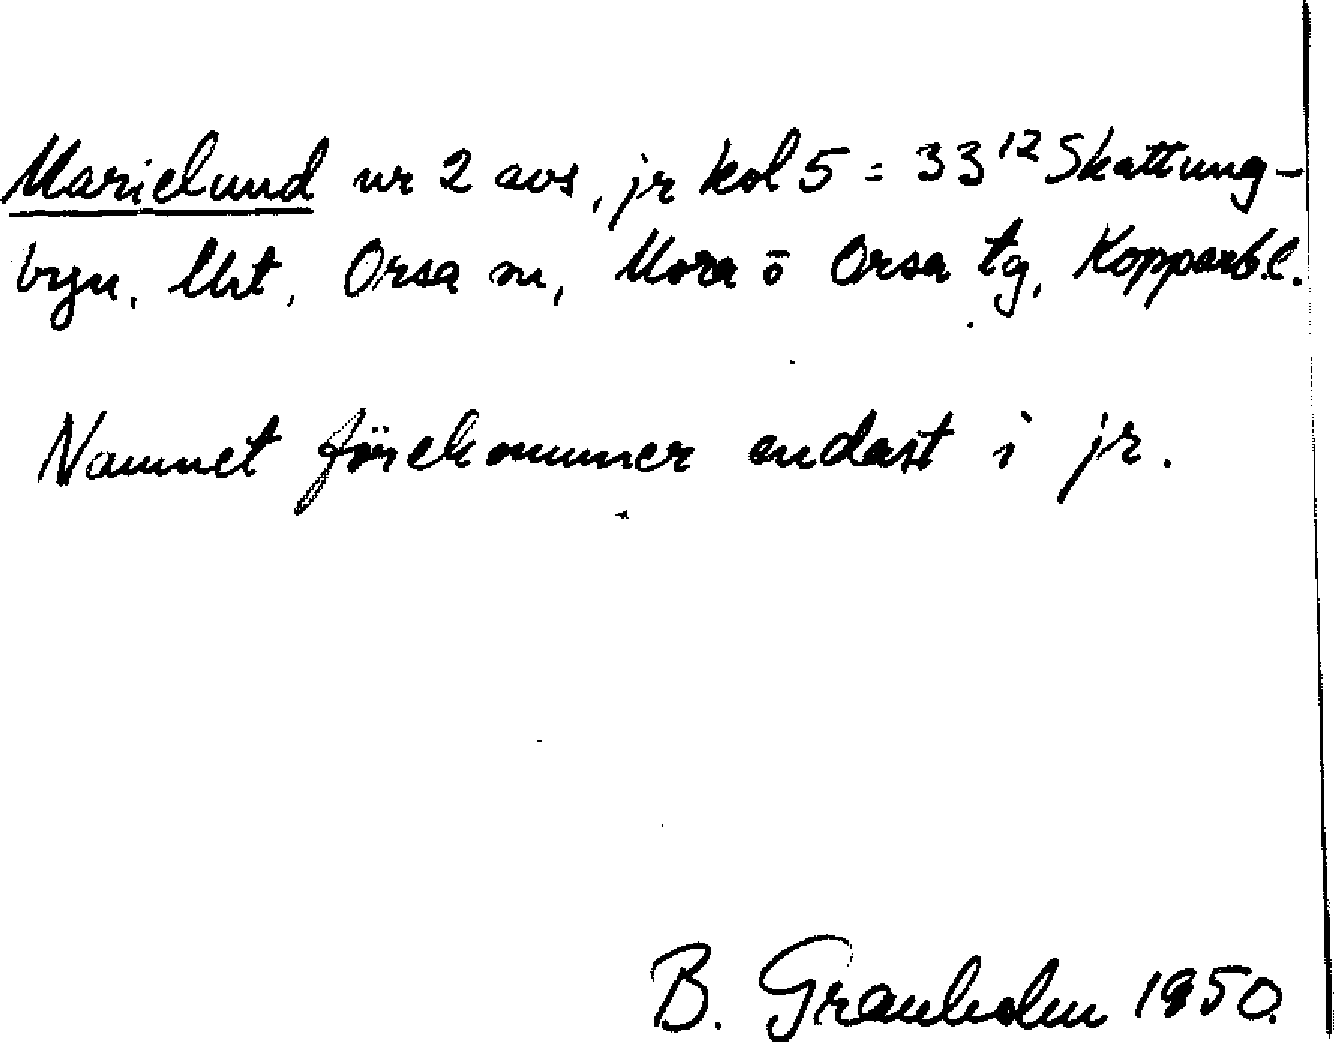 Marielund nr 2 avs, jr kol 5 = 33¹² Skattung-
byn, lht, Orsa sn, Mora ō Orsa tg, Kopparb.l.
Namnet förekommer endast i jr.
B. Granholm 1950.